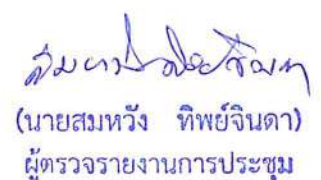 (นายสมหวัง ทิพย์จินดา)
ผู้ตรวจรายงานการประชุม